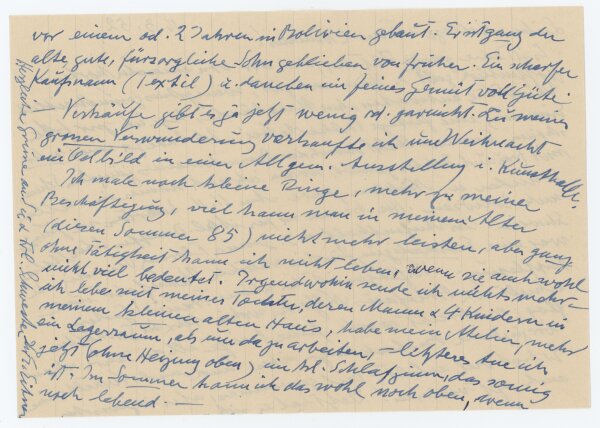 vor einem od. 2 Jahren in Bolivien gebaut. Er ist ganz der
alte, gute, fürsorgliche Sohn geblieben von früher. Ein scharfer
Kaufmann (Textil) u. daneben ein feines Gemüt voll Güte.
Verkäufe gibt es ja jetzt wenig od. gar nicht. Zu meiner
grossen Verwunderung verkaufte ich um Weihnacht
ein Oelbild in einer Allgem. Ausstellung i. Kunsthalle.
Ich male noch kleine Dinge, mehr zu meiner
Beschäftigung, viel kann man in meinem Alter
(diesen Sommer 85) nicht mehr leisten, aber ganz
ohne Tätigkeit kann ich nicht leben, wenn sie auch wohl
nicht viel bedeutet. Irgendwohin sende ich nichts mehr –
ich lebe mit meiner Tochter, deren Mann & 4 Kindern in
meinem kleinen alten Haus, habe mein Atelier, mehr
ein Lagerraum, als um da zu arbeiten, – letzteres tue ich
jetzt (ohne Heizung oben) im Schlafzimm., das sonnig
ist. Im Sommer kann ich das wohl noch oben, wenn
noch lebend. —
Herzliche Grüsse auch a. Frl. Schwester Ihr